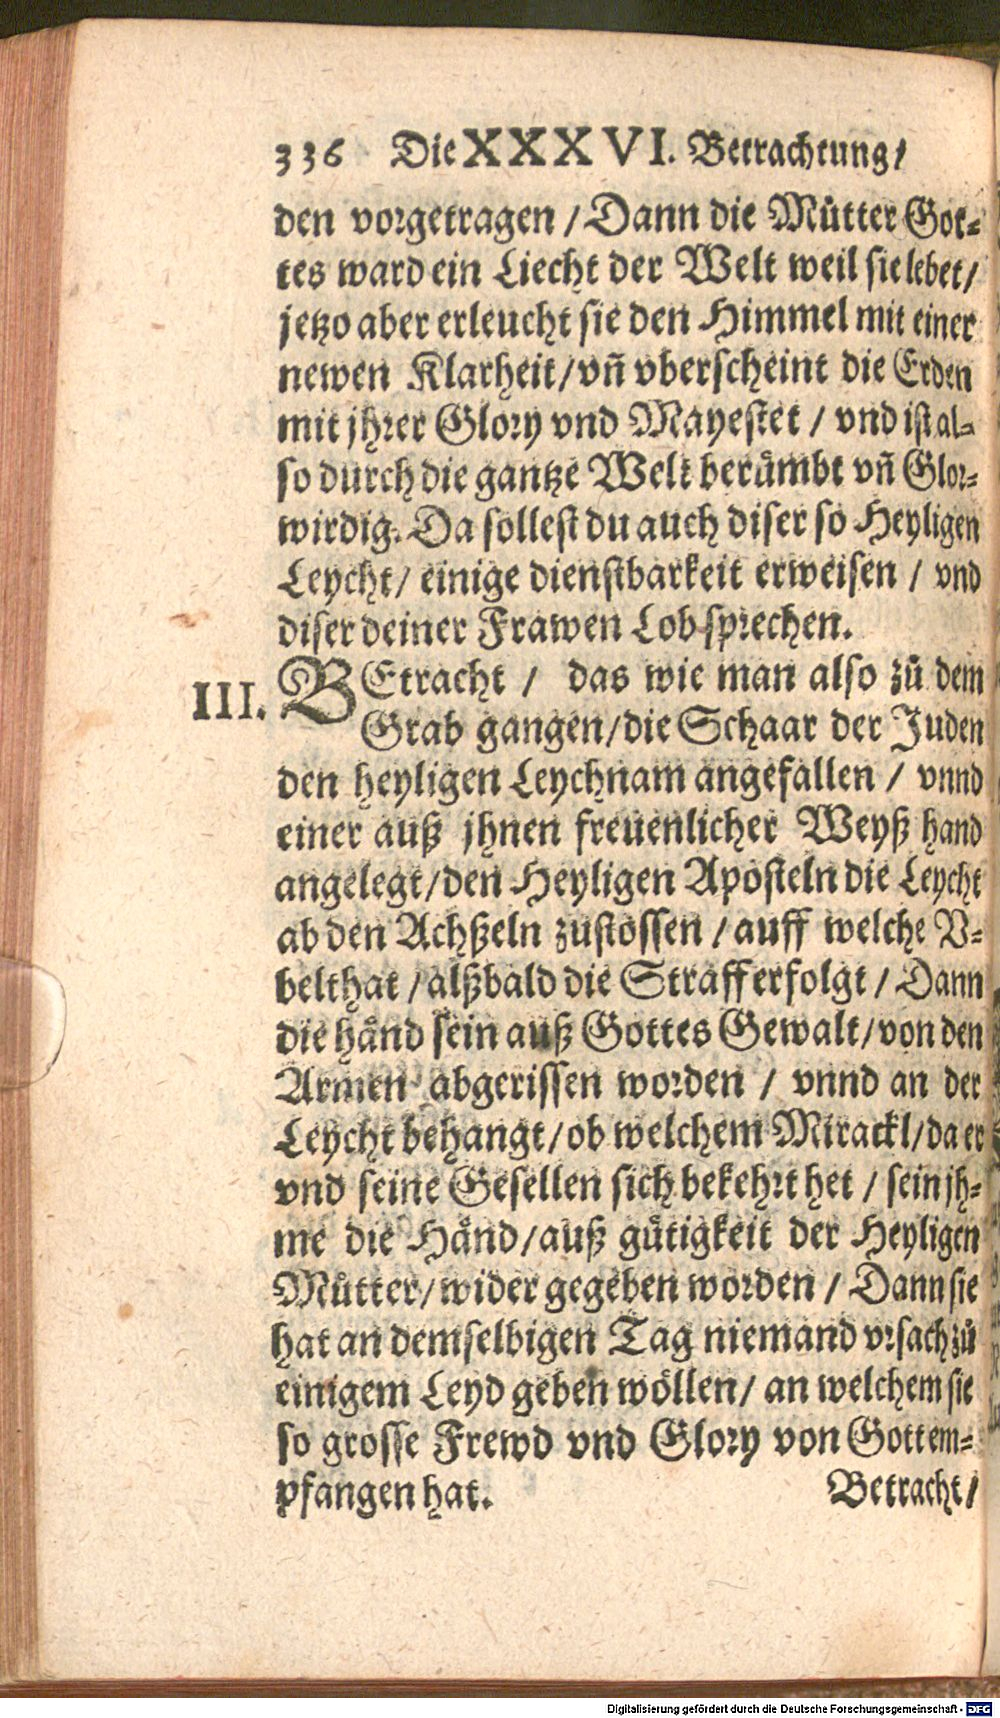 336 Die XXXVI. Betrachtung/
den vorgetragen / Dann die Můtter Got-
tes ward ein Liecht der Welt weil sie lebet/
jetzo aber erleucht sie den Himmel mit einer
newen Klarheit/vñ vberscheint die Erden
mit jhrer Glory vnd Mayestet / vnd ist al-
so durch die gantze Welt berůmbt vñ Glor-
wirdig. Da sollest du auch diser so Heyligen
Leycht/ einige dienstbarkeit erweisen / vnd
diser deiner Frawen Lob sprechen.
III. BEtracht / das wie man also zů dem
Grab gangen/die Schaar der Juden
den heyligen Leychnam angefallen / vnnd
einer auß jhnen freuenlicher Weyß hand
angelegt/den Heyligen Aposteln die Leycht
ab den Achßeln zustossen / auff welche V-
belthat / alßbald die Straff erfolgt / Dann
die hånd sein auß Gottes Gewalt/von den
Armen abgerissen worden / vnnd an der
Leycht behangt/ob welchem Mirackl/da er
vnd seine Gesellen sich bekehrt het / sein jh-
me die Hånd/auß gůtigkeit der Heyligen
Můtter/wider gegeben worden / Dann sie
hat an demselbigen Tag niemand vrsach zů
einigem Leyd geben wöllen/ an welchem sie
so grosse Frewd vnd Glory von Gott em-
pfangen hat. Betracht/
Digitalisierung gefördert durch die Deutsche Forschungsgemeinschaft - DFG